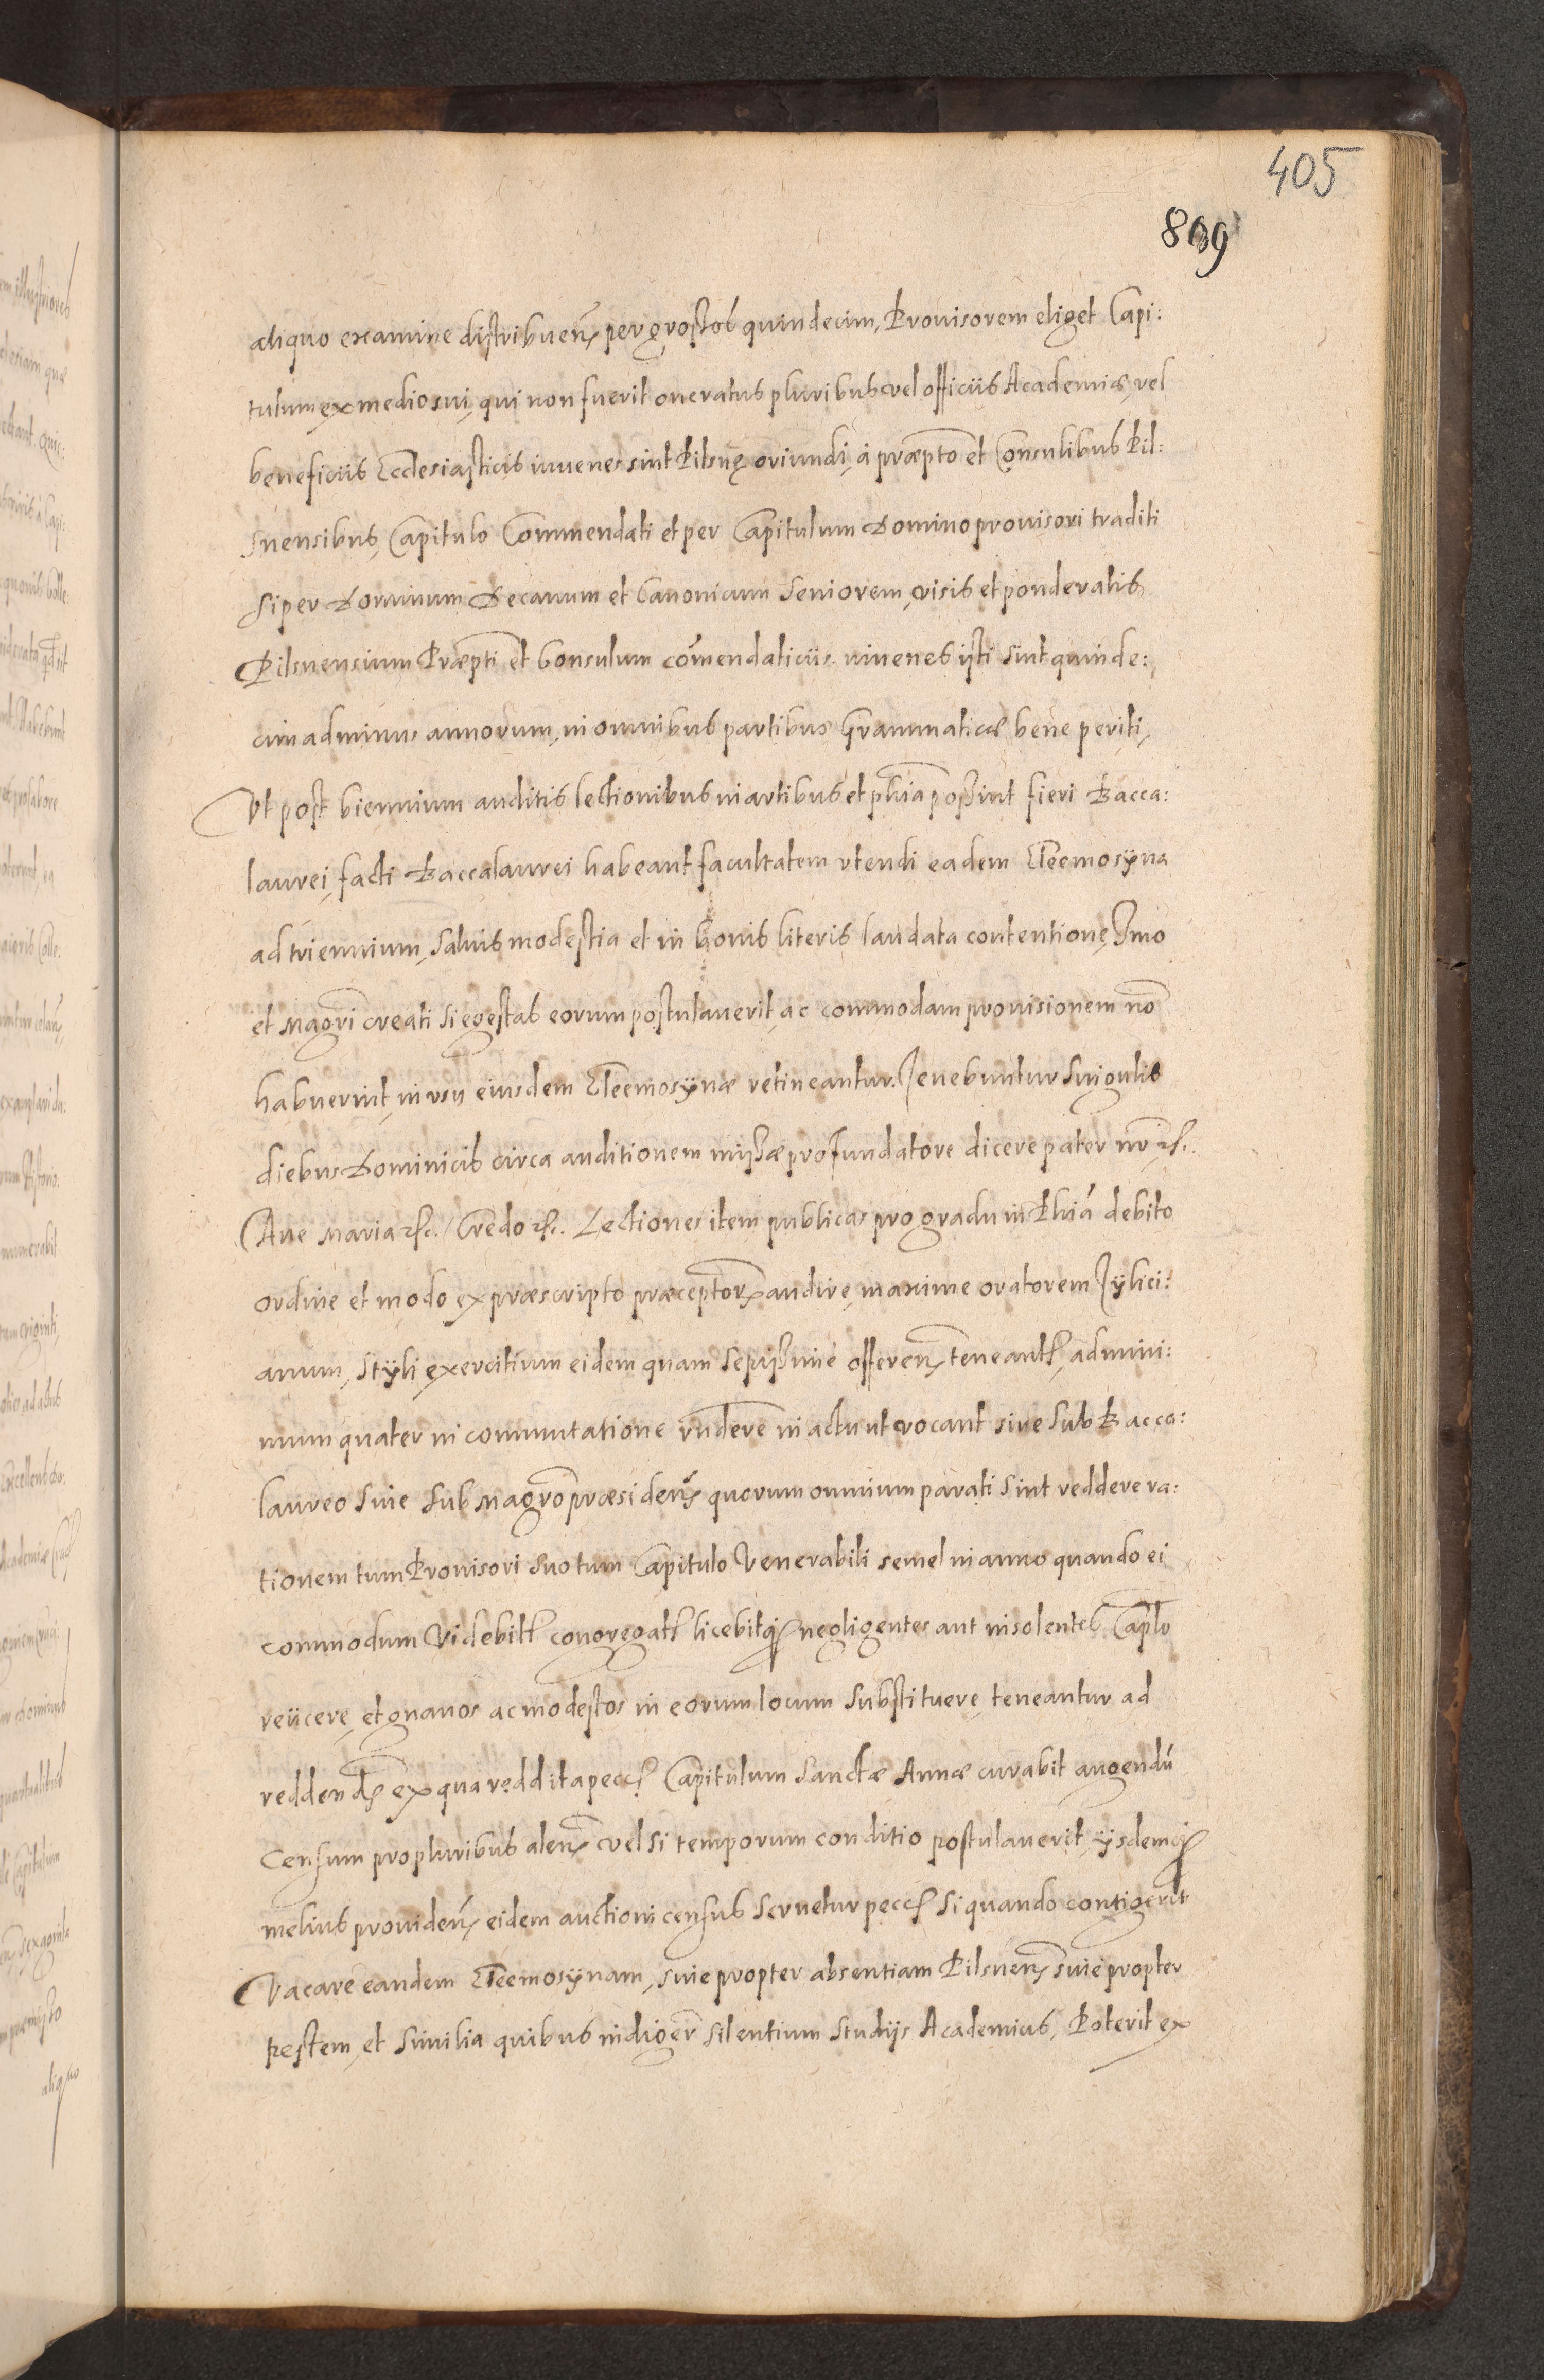 405
809
aliquo examine distribuen̄ per grossos quindecim, Prouisorem eliget Capi:
tulum ex medio sui, qui non fuerit oneratus pluribus vel officiis Academiæ, vel
beneficiis Ecclesiasticis iuuenes sint Pilsnę oriundi, à præpto et Consulibus Pil:
snensibus, Capitulo Commendati et per Capitulum Domino prouisori traditi
si per Dominum Decanum et Canonicum Seniorem, visis et ponderatis
Pilsnensium Præpti et Consulum cōmendaticiis. iuuenes isti sint quinde:
cim ad minus annorum, in omnibus partibus Grammaticæ bene periti,
Vt post biennium auditis lectionibus in artibus et phīa possint fieri Bacca:
laurei, facti Baccalaurei habeant facultatem vtendi eadem Eleemosÿna
ad triennium, Saluis modestia et in bonis literis laudata contentionę, Imo
et Magr̄i creati si egestas eorum postulauerit, ac commodam prouisionem nō
habuerint, in vsu eiusdem Eleemosÿnæ retineantur. Tenebuntur singulis
diebus Dominicis circa auditionem missæ pro fundatore dicere pater nr̄ etc.
Aue Maria etc. Credo etc. Lectiones item publicas pro gradu in Phīa debito
ordine et modo ex præscripto præceptor, audire, maxime oratorem Tÿlici:
anum, Stÿli exercitium eidem quam sepissime offeren̄, teneantr, ad mini:
mum quater in commutatione rn̄dere in actu ut vocant siue sub Bacca:
laureo siue sub Magr̄o præsiden̄, quorum omnium parati sint reddere ra:
tionem tum Prouisori suo tum Capitulo Venerabili semel in anno quando ei
commodum Videbitr congregatr licebitq negligentes aut insolentes Caplo
reiicere, et gnauos ac modestos in eorum locum substituere, teneantur ad
redden̄d ex qua reddita pecc Capitulum Sanctæ Annæ curabit augendū
Censum pro pluribus alen̄, vel si temporum conditio postulauerit, ÿsdemq
melius prouiden̄, eidem auctioni census seruetur pecc Si quando contigerit
Vacare eandem Eleemosÿnam, siue propter absentiam Pilsnen̄, siue propter
pestem, et similia quibus indiger silentium studijs Academius, Poterit ex